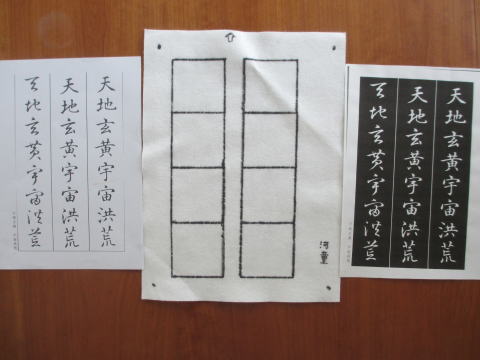 天地玄黄宇宙洪荒
天地玄黄宇宙洪荒
天地玄黄宇宙洪荒
河童
天地玄黄宇宙洪荒
天地玄黄宇宙洪荒
天地玄黄宇宙洪荒